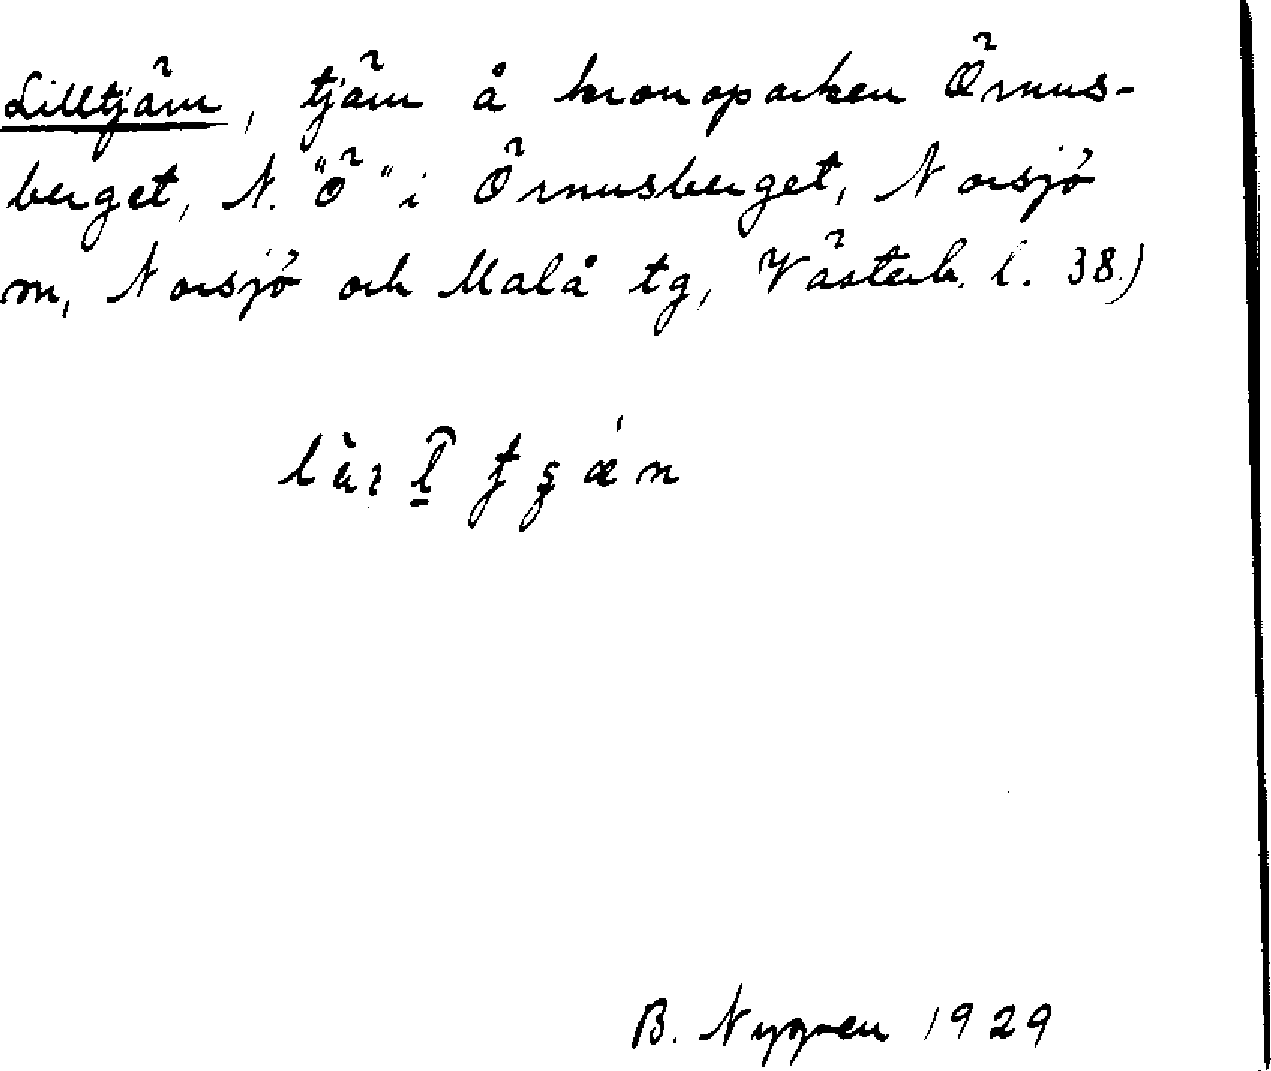 Lilltjärn, tjärn å kronoparken Örmus-
berget, N. "Ö" i Örmusberget, Norsjö
m, Norsjö och Malå tg, Västerb. l. 38.)
B. Nygren 1929